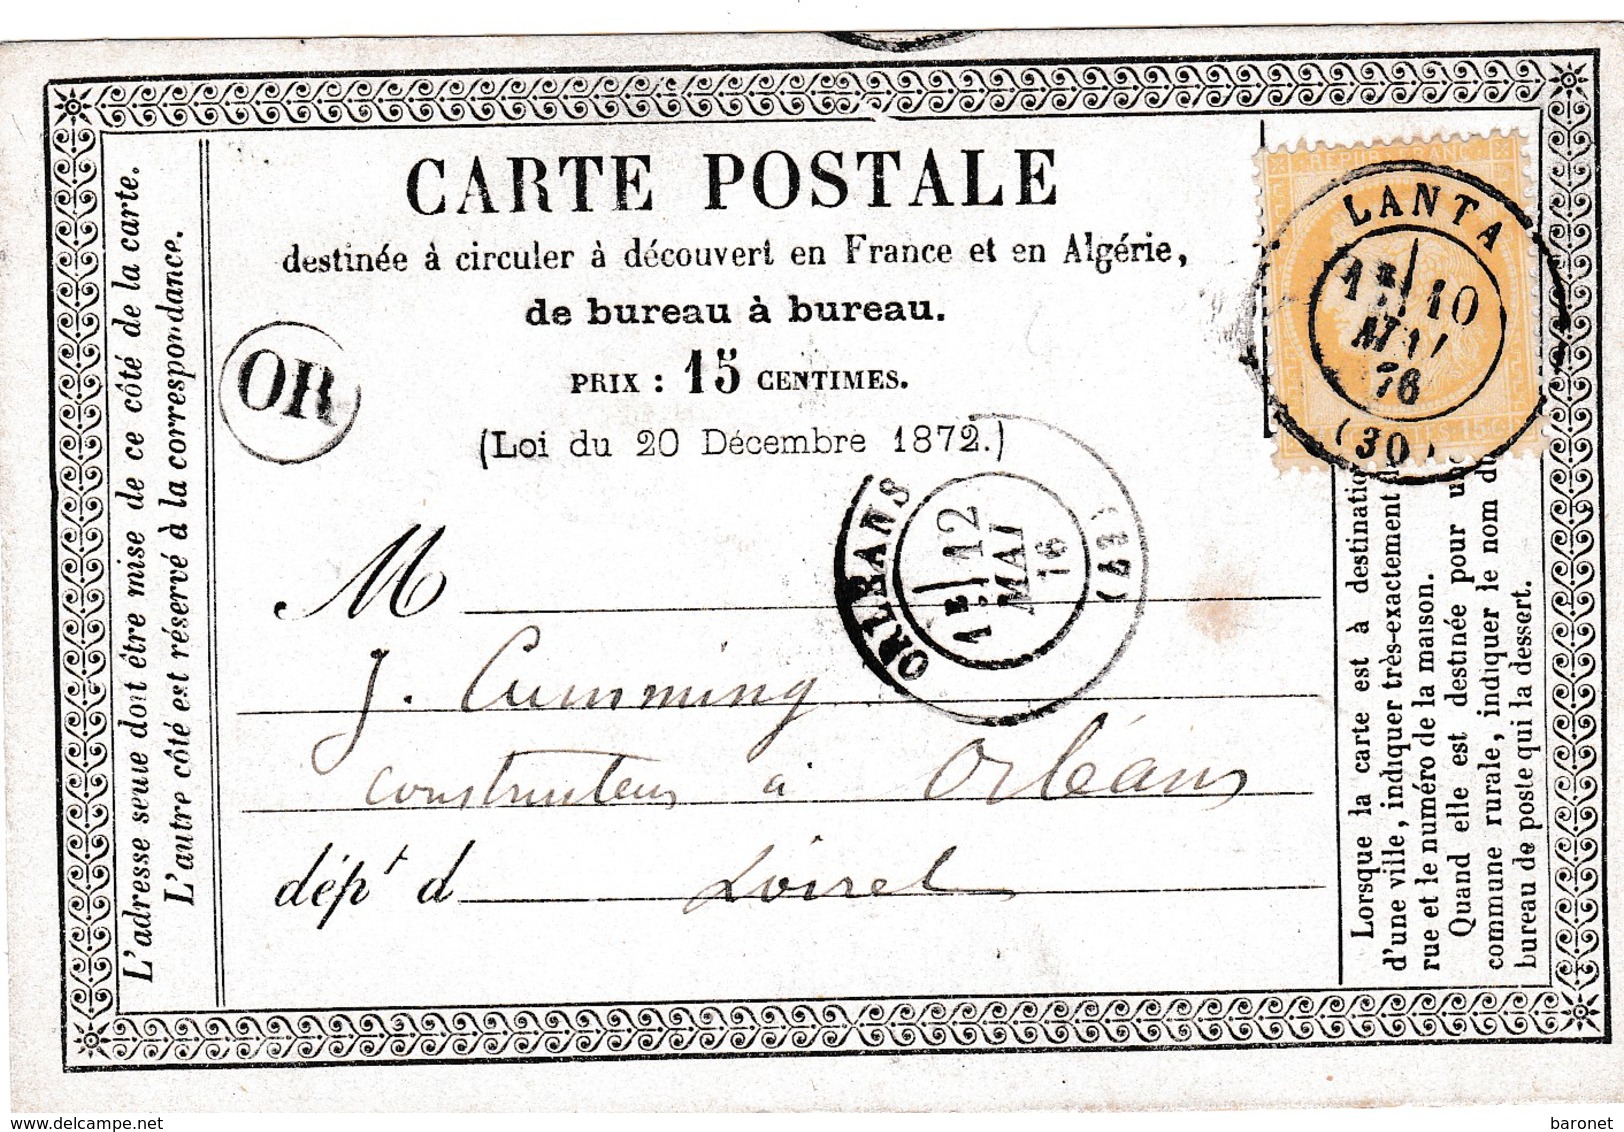 CARTE POSTALE
destinée à circuler à découvert en France et en Algérie,
de bureau à bureau.
PRIX : 15 CENTIMES.
(Loi du 20 Décembre 1872.)
L'adresse seule doit être mise de ce côté de la carte.
L'autre côté est réservé à la correspondance.
OR
REPUB FRANC
15c
LANTA
1E 10
MAI
76
(30)
ORLEANS
1E 12
MAI
76
M
J. Cumming
constructeur à Orléans
dépt d Loiret
Lorsque la carte est à destination
d'une ville, indiquer très-exactement
rue et le numéro de la maison.
Quand elle est destinée pour
commune rurale, indiquer le nom du
bureau de poste qui la dessert.
www.delcampe.net
baronet